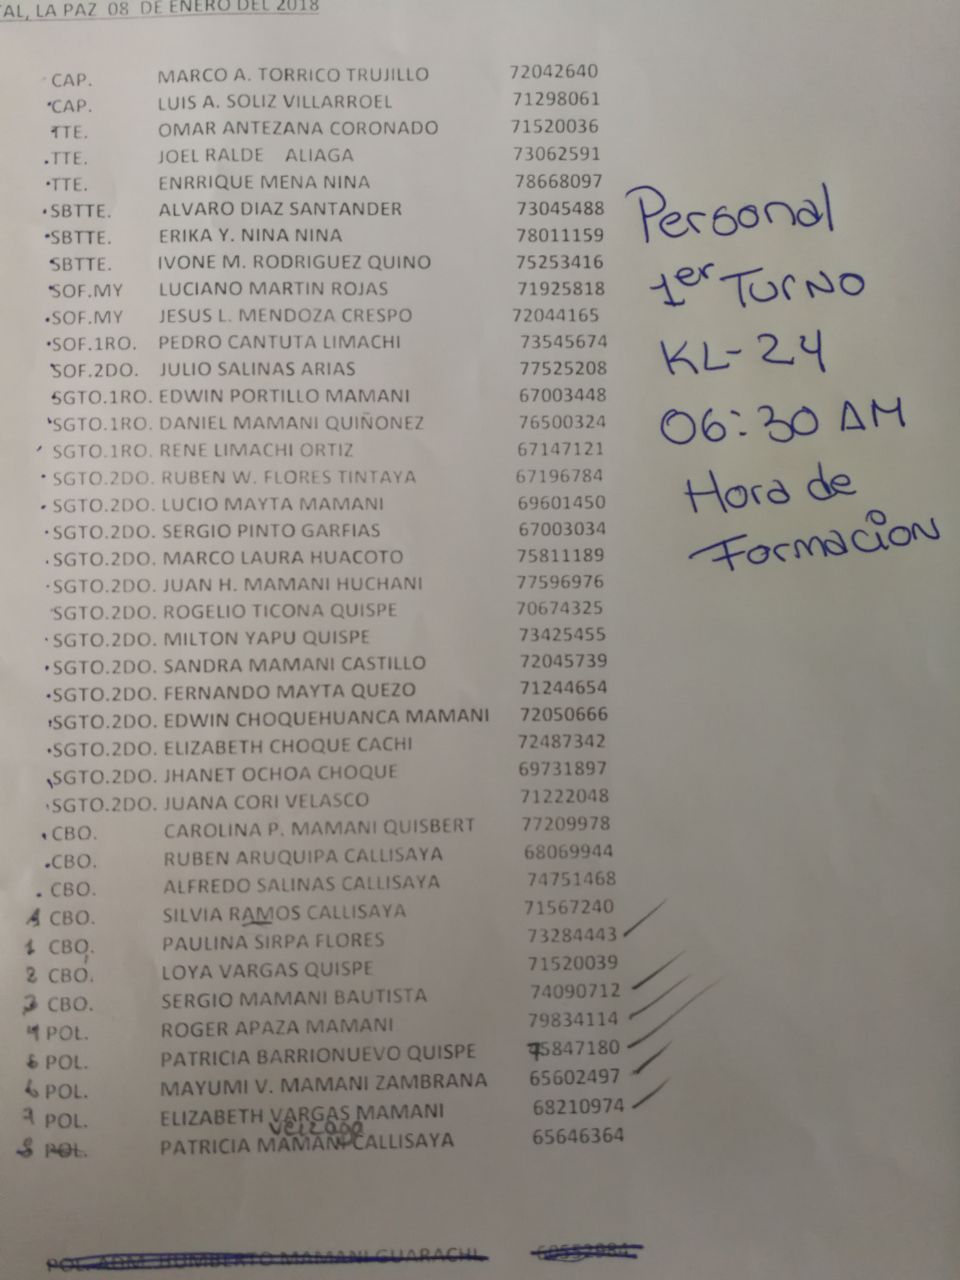 TAL, LA PAZ 08 DE ENERO DEL 2018
CAP. MARCO A. TORRICO TRUJILLO 72042640
CAP. LUIS A. SOLIZ VILLARROEL 71298061
TTE. OMAR ANTEZANA CORONADO 71520036
TTE. JOEL RALDE ALIAGA 73062591
TTE. ENRRIQUE MENA NINA 78668097
SBTTE. ALVARO DIAZ SANTANDER 73045488
SBTTE. ERIKA Y. NINA NINA 78011159
SBTTE. IVONE M. RODRIGUEZ QUINO 75253416
SOF.MY LUCIANO MARTIN ROJAS 71925818
SOF.MY JESUS L. MENDOZA CRESPO 72044165
SOF.1RO. PEDRO CANTUTA LIMACHI 73545674
SOF.2DO. JULIO SALINAS ARIAS 77525208
SGTO.1RO. EDWIN PORTILLO MAMANI 67003448
SGTO.1RO. DANIEL MAMANI QUIÑONEZ 76500324
SGTO.1RO. RENE LIMACHI ORTIZ 67147121
SGTO.2DO. RUBEN W. FLORES TINTAYA 67196784
SGTO.2DO. LUCIO MAYTA MAMANI 69601450
SGTO.2DO. SERGIO PINTO GARFIAS 67003034
SGTO.2DO. MARCO LAURA HUACOTO 75811189
SGTO.2DO. JUAN H. MAMANI HUCHANI 77596976
SGTO.2DO. ROGELIO TICONA QUISPE 70674325
SGTO.2DO. MILTON YAPU QUISPE 73425455
SGTO.2DO. SANDRA MAMANI CASTILLO 72045739
SGTO.2DO. FERNANDO MAYTA QUEZO 71244654
SGTO.2DO. EDWIN CHOQUEHUANCA MAMANI 72050666
SGTO.2DO. ELIZABETH CHOQUE CACHI 72487342
SGTO.2DO. JHANET OCHOA CHOQUE 69731897
SGTO.2DO. JUANA CORI VELASCO 71222048
CBO. CAROLINA P. MAMANI QUISBERT 77209978
CBO. RUBEN ARUQUIPA CALLISAYA 68069944
CBO. ALFREDO SALINAS CALLISAYA 74751468
CBO. SILVIA RAMOS CALLISAYA 71567240
1 CBO. PAULINA SIRPA FLORES 73284443
2 CBO. LOYA VARGAS QUISPE 71520039
3 CBO. SERGIO MAMANI BAUTISTA 74090712
4 POL. ROGER APAZA MAMANI 79834114
POL. PATRICIA BARRIONUEVO QUISPE 75847180
6 POL. MAYUMI V. MAMANI ZAMBRANA 65602497
7 POL. ELIZABETH VARGAS MAMANI 68210974
8 POL. PATRICIA MAMANI CALLISAYA 65646364
POL. ADM. HUMBERTO MAMANI GUARACHI
Personal
1er TURNO
KL-24
06:30 AM
Hora de
Formacion